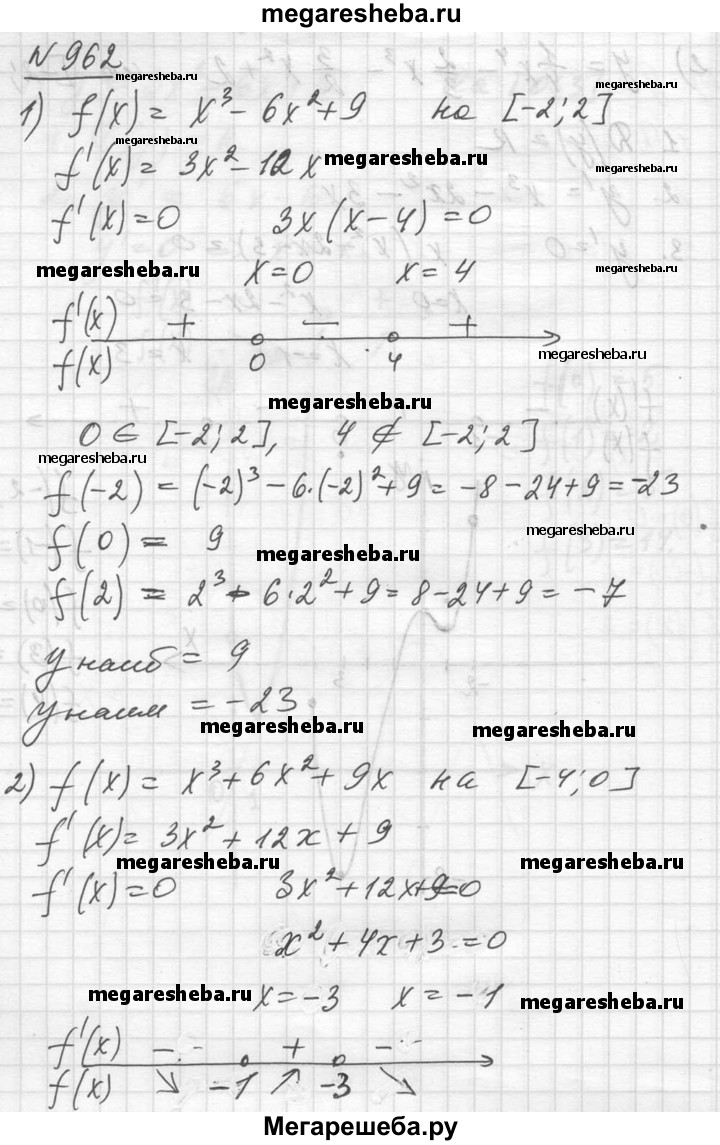 megaresheba.ru
N 962
megaresheba.ru
megaresheba.ru
1) f(x) = x³ - 6x² + 9 на [-2; 2]
f'(x) = 3x² - 12x
megaresheba.ru
megaresheba.ru
f'(x) = 0 3x(x - 4) = 0
megaresheba.ru
x = 0 x = 4
megaresheba.ru
f'(x) + - +
0 4
f(x)
megaresheba.ru
megaresheba.ru
0 ∈ [-2; 2], 4 ∉ [-2; 2]
megaresheba.ru
f(-2) = (-2)³ - 6·(-2)² + 9 = -8 - 24 + 9 = -23
megaresheba.ru
f(0) = 9
megaresheba.ru
f(2) = 2³ - 6·2² + 9 = 8 - 24 + 9 = -7
y наиб = 9
y наим = -23
megaresheba.ru
megaresheba.ru
2) f(x) = x³ + 6x² + 9x на [-4; 0]
f'(x) = 3x² + 12x + 9
megaresheba.ru
megaresheba.ru
f'(x) = 0 3x² + 12x + 9 = 0
x² + 4x + 3 = 0
megaresheba.ru
x = -3 x = -1
megaresheba.ru
f'(x) - + -
f(x) ↘ -1 ↗ -3 ↘
Мегарешеба.ру